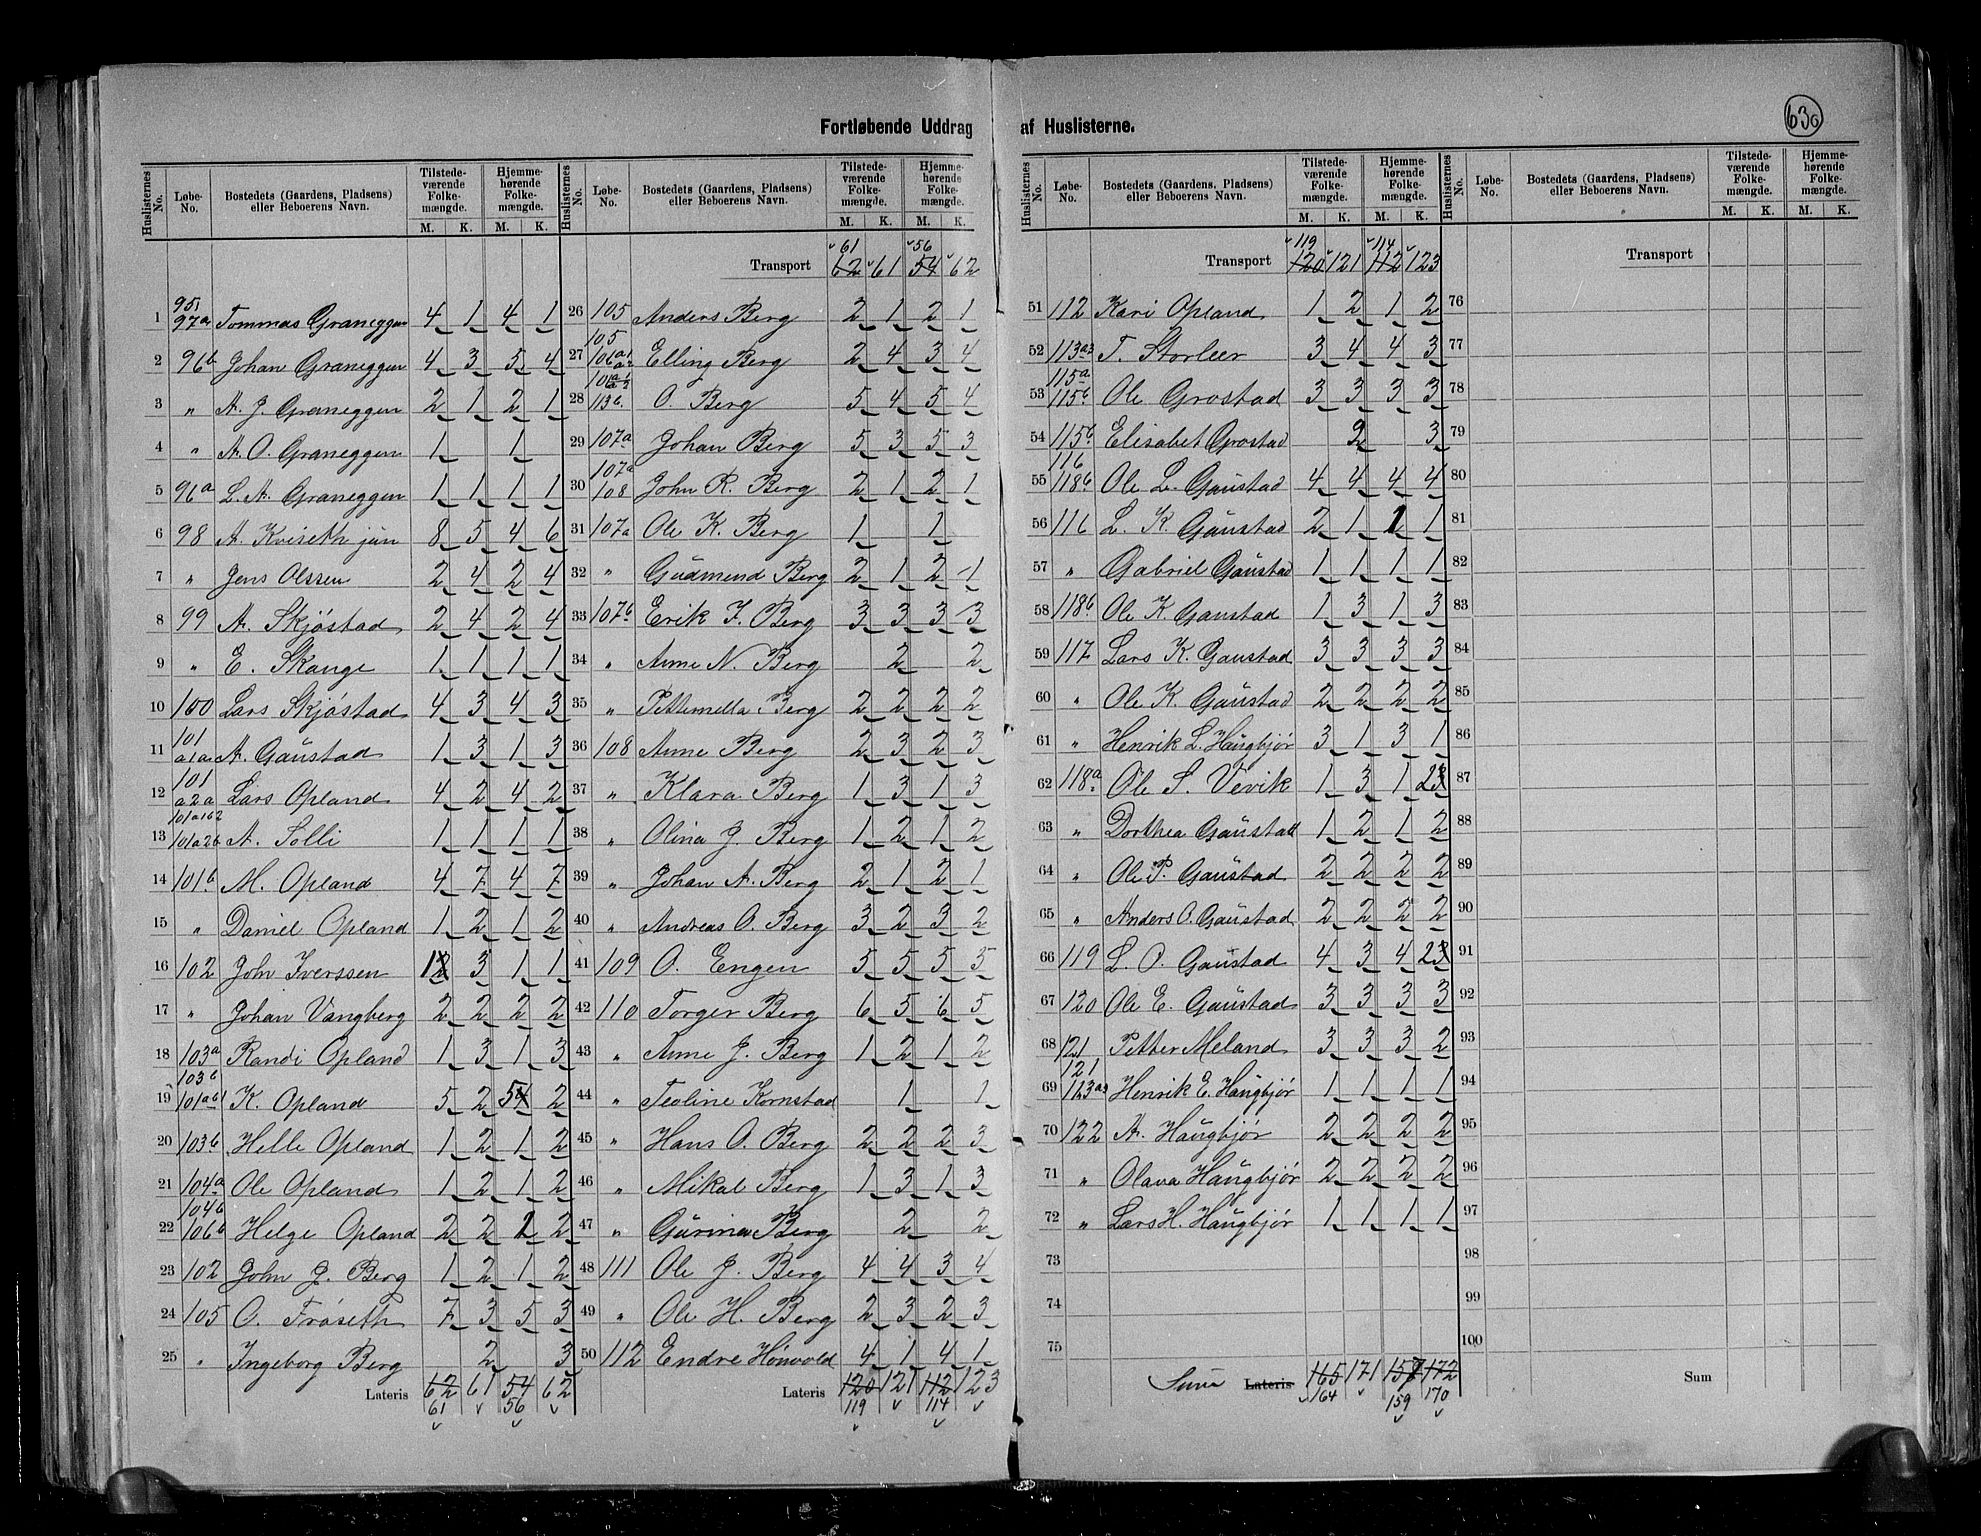 630
Fortløbende Uddrag af Huslisterne.
Huslisternes No. Løbe-No. Bostedets (Gaardens, Pladsens) eller Beboerens Navn. Tilstedeværende Folkemængde. M. K. Hjemmehørende Folkemængde. M. K.
1 95/97a Tommas Graneggen 4 1 4 1
2 96b Johan Graneggen 4 3 5 4
3 " A. J. Graneggen 2 1 2 1
4 " A. O. Graneggen 1 1
5 96a L. A. Graneggen 1 1 1 1
6 98 A. Kviseth jun 8 5 4 6
7 " Jens Olssen 2 4 2 4
8 99 A. Skjøstad 2 4 2 4
9 " E. Skange 1 1 1 1
10 100 Lars Skjøstad 4 3 4 3
11 101 a1a A. Gaustad 1 3 1 3
12 101 a2a Lars Opland 4 2 4 2
13 101a1b2 101a2b A. Solli 1 1 1 1
14 101b M. Opland 4 7 4 7
15 " Daniel Opland 1 2 1 2
16 102 John Iverssen 1 3 1 1
17 " Johan Vangberg 2 2 2 2
18 103a Randi Opland 1 3 1 3
19 103b 101ab1 K. Opland 5 2 5 2
20 103b Helle Opland 1 2 1 2
21 104a Ole Opland 1 2 1 2
22 104b 106b Helge Opland 2 2 2 2
23 102 John J. Berg 1 2 1 2
24 105 O. Frøseth 7 3 5 3
25 " Ingeborg Berg 2 3
Lateris 62 61 54 62
61 56
Huslisternes No. Løbe-No. Bostedets (Gaardens, Pladsens) eller Beboerens Navn. Tilstedeværende Folkemængde. M. K. Hjemmehørende Folkemængde. M. K.
61 56
Transport 62 61 54 62
26 105 Anders Berg 2 1 2 1
27 105 106a1 Elling Berg 2 4 3 4
28 106a2 113b O. Berg 5 4 5 4
29 107a Johan Berg 5 3 5 3
30 107a 108 John R. Berg 2 1 2 1
31 107a Ole K. Berg 1 1
32 " Gudmund Berg 2 1 2 1
33 107b Erik I. Berg 3 3 3 3
34 " Anne N. Berg 2 2
35 " Petternella Berg 2 2 2 2
36 108 Anne Berg 2 3 2 3
37 " Klara Berg 1 3 1 3
38 " Olina J. Berg 1 2 1 2
39 " Johan A. Berg 2 1 2 1
40 " Andreas O. Berg 3 2 3 2
41 109 O. Engen 5 5 5 5
42 110 Torger Berg 6 5 6 5
43 " Anne J. Berg 1 2 1 2
44 " Teoline Kornstad 1 1
45 " Hans O. Berg 2 2 2 3
46 " Mikal Berg 1 3 1 3
47 " Gurina Berg 2 2
48 111 Ole J. Berg 4 4 3 4
49 " Ole H. Berg 2 3 2 3
50 112 Endre Hønvold 4 1 4 1
Lateris 120 121 112 123
119 114
Huslisternes No. Løbe-No. Bostedets (Gaardens, Pladsens) eller Beboerens Navn. Tilstedeværende Folkemængde. M. K. Hjemmehørende Folkemængde. M. K.
119 114
Transport 120 121 112 123
51 112 Kari Opland 1 2 1 2
52 113a3 T. Storleer 3 4 4 3
53 115a 115b Ole Grostad 3 3 3 3
54 115b Elisabet Grostad 2 3
55 116 118b Ole L. Gaustad 4 4 4 4
56 116 L. K. Gaustad 2 1 1 1
57 " Gabriel Gaustad 1 1 1 1
58 118b Ole K. Gaustad 1 3 1 3
59 117 Lars K. Gaustad 3 3 3 3
60 " Ole K. Gaustad 2 2 2 2
61 " Henrik L. Haugbjør 3 1 3 1
62 118a Ole S. Vevik 1 3 1 2
63 " Dorthea Gaustad 1 2 1 2
64 " Ole P. Gaustad 2 2 2 2
65 " Anders O. Gaustad 2 2 2 2
66 119 L. O. Gaustad 4 3 4 2
67 120 Ole E. Gaustad 3 3 3 3
68 121 Petter Meland 3 3 3 2
69 121 113a3 Henrik E. Haugbjør 1 1 1 1
70 122 A. Haugbjør 2 2 2 2
71 " Olava Haugbjør 2 2 2 2
72 " Lars H. Haugbjør 1 1 1 1
73
74
75
Suma Lateris 165 171 157 172
164 159 170
Huslisternes No. Løbe-No. Bostedets (Gaardens, Pladsens) eller Beboerens Navn. Tilstedeværende Folkemængde. M. K. Hjemmehørende Folkemængde. M. K.
Transport
76
77
78
79
80
81
82
83
84
85
86
87
88
89
90
91
92
93
94
95
96
97
98
99
100
Sum